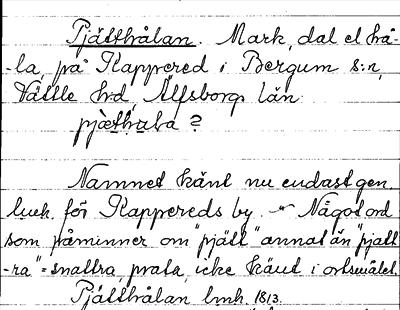 Pjätthålan. Mark, dal el hå-
-la, på Kappered i Bergum s:n,
Vättle h:d, Älfsborgs län.
pjæthaɷla ?
Namnet känt nu endast gen.
lmk. för Kappereds by. Något ord
som påminner om "pjätt" annat än "pjatt
-ra" = snattra, prata, icke känt i ortsmålet.
Pjätthålan lmk. 1813.